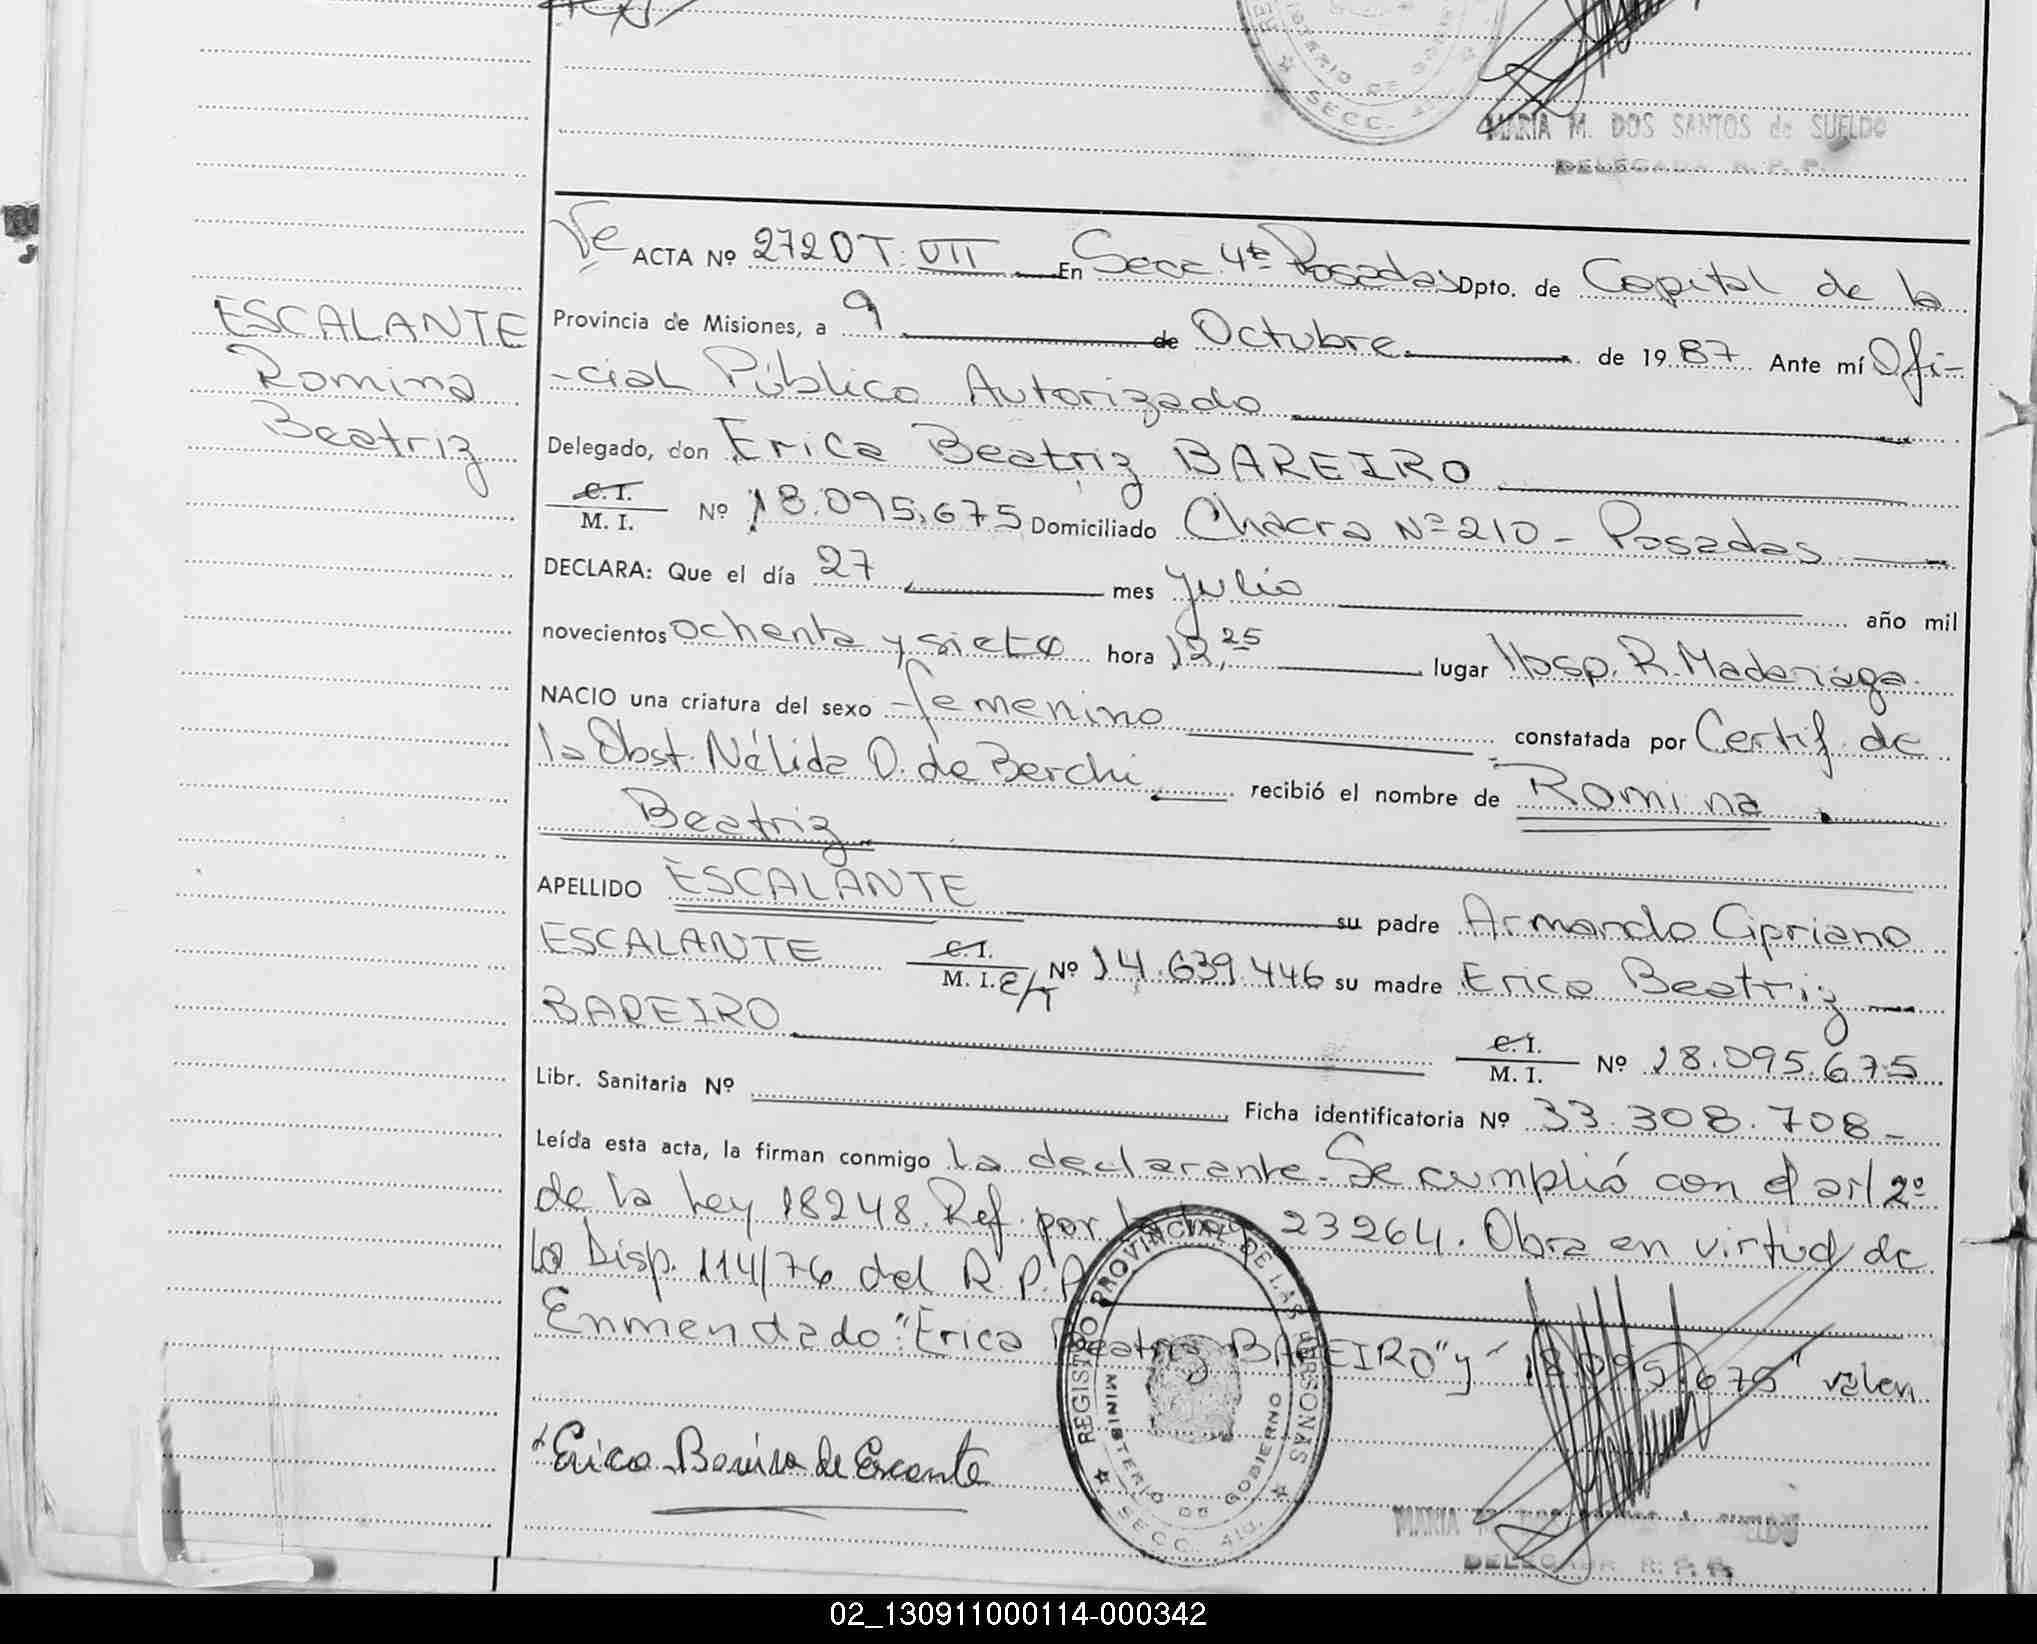 SECC. 4ta.
MARIA M. DOS SANTOS de SUELDO
DELEGADA R. P. P.
ESCALANTE
Romina
Beatriz
ACTA Nº 2720 T. VII En Secc. 4ª Posadas Dpto. de Capital de la
Provincia de Misiones, a 9 de Octubre de 1987 Ante mí Ofi-
-cial Público Autorizado
Delegado, don Erica Beatriz BAREIRO
C.I. M. I. Nº 18.095.675 Domiciliado Chacra Nº 210 - Posadas
DECLARA: Que el día 27 mes Julio año mil
novecientos ochenta y siete hora 12,25 lugar Hosp. R. Madariaga
NACIO una criatura del sexo femenino constatada por Certif. de
la Obst. Nélida O. de Berchi recibió el nombre de Romina
Beatriz
APELLIDO ESCALANTE su padre Armando Cipriano
ESCALANTE C.I. M. I. E/T Nº 14.639.446 su madre Erica Beatriz
BAREIRO C.I. M. I. Nº 18.095.675
Libr. Sanitaria Nº Ficha identificatoria Nº 33.308.708-
Leída esta acta, la firman conmigo la declarante. Se cumplió con el art 2º
de la Ley 18248. Ref. por la Ley 23264. Obra en virtud de
la Disp. 114/76 del R.P.P.
Enmendado: "Erica Beatriz BAREIRO" y "18.095.675" valen
REGISTRO PROVINCIAL DE LAS PERSONAS
MINISTERIO DE GOBIERNO
SECC. 4ta.
Erica Bareiro de Escalante
MARIA M. DOS SANTOS de SUELDO
DELEGADA R. P. P.
02_130911000114-000342